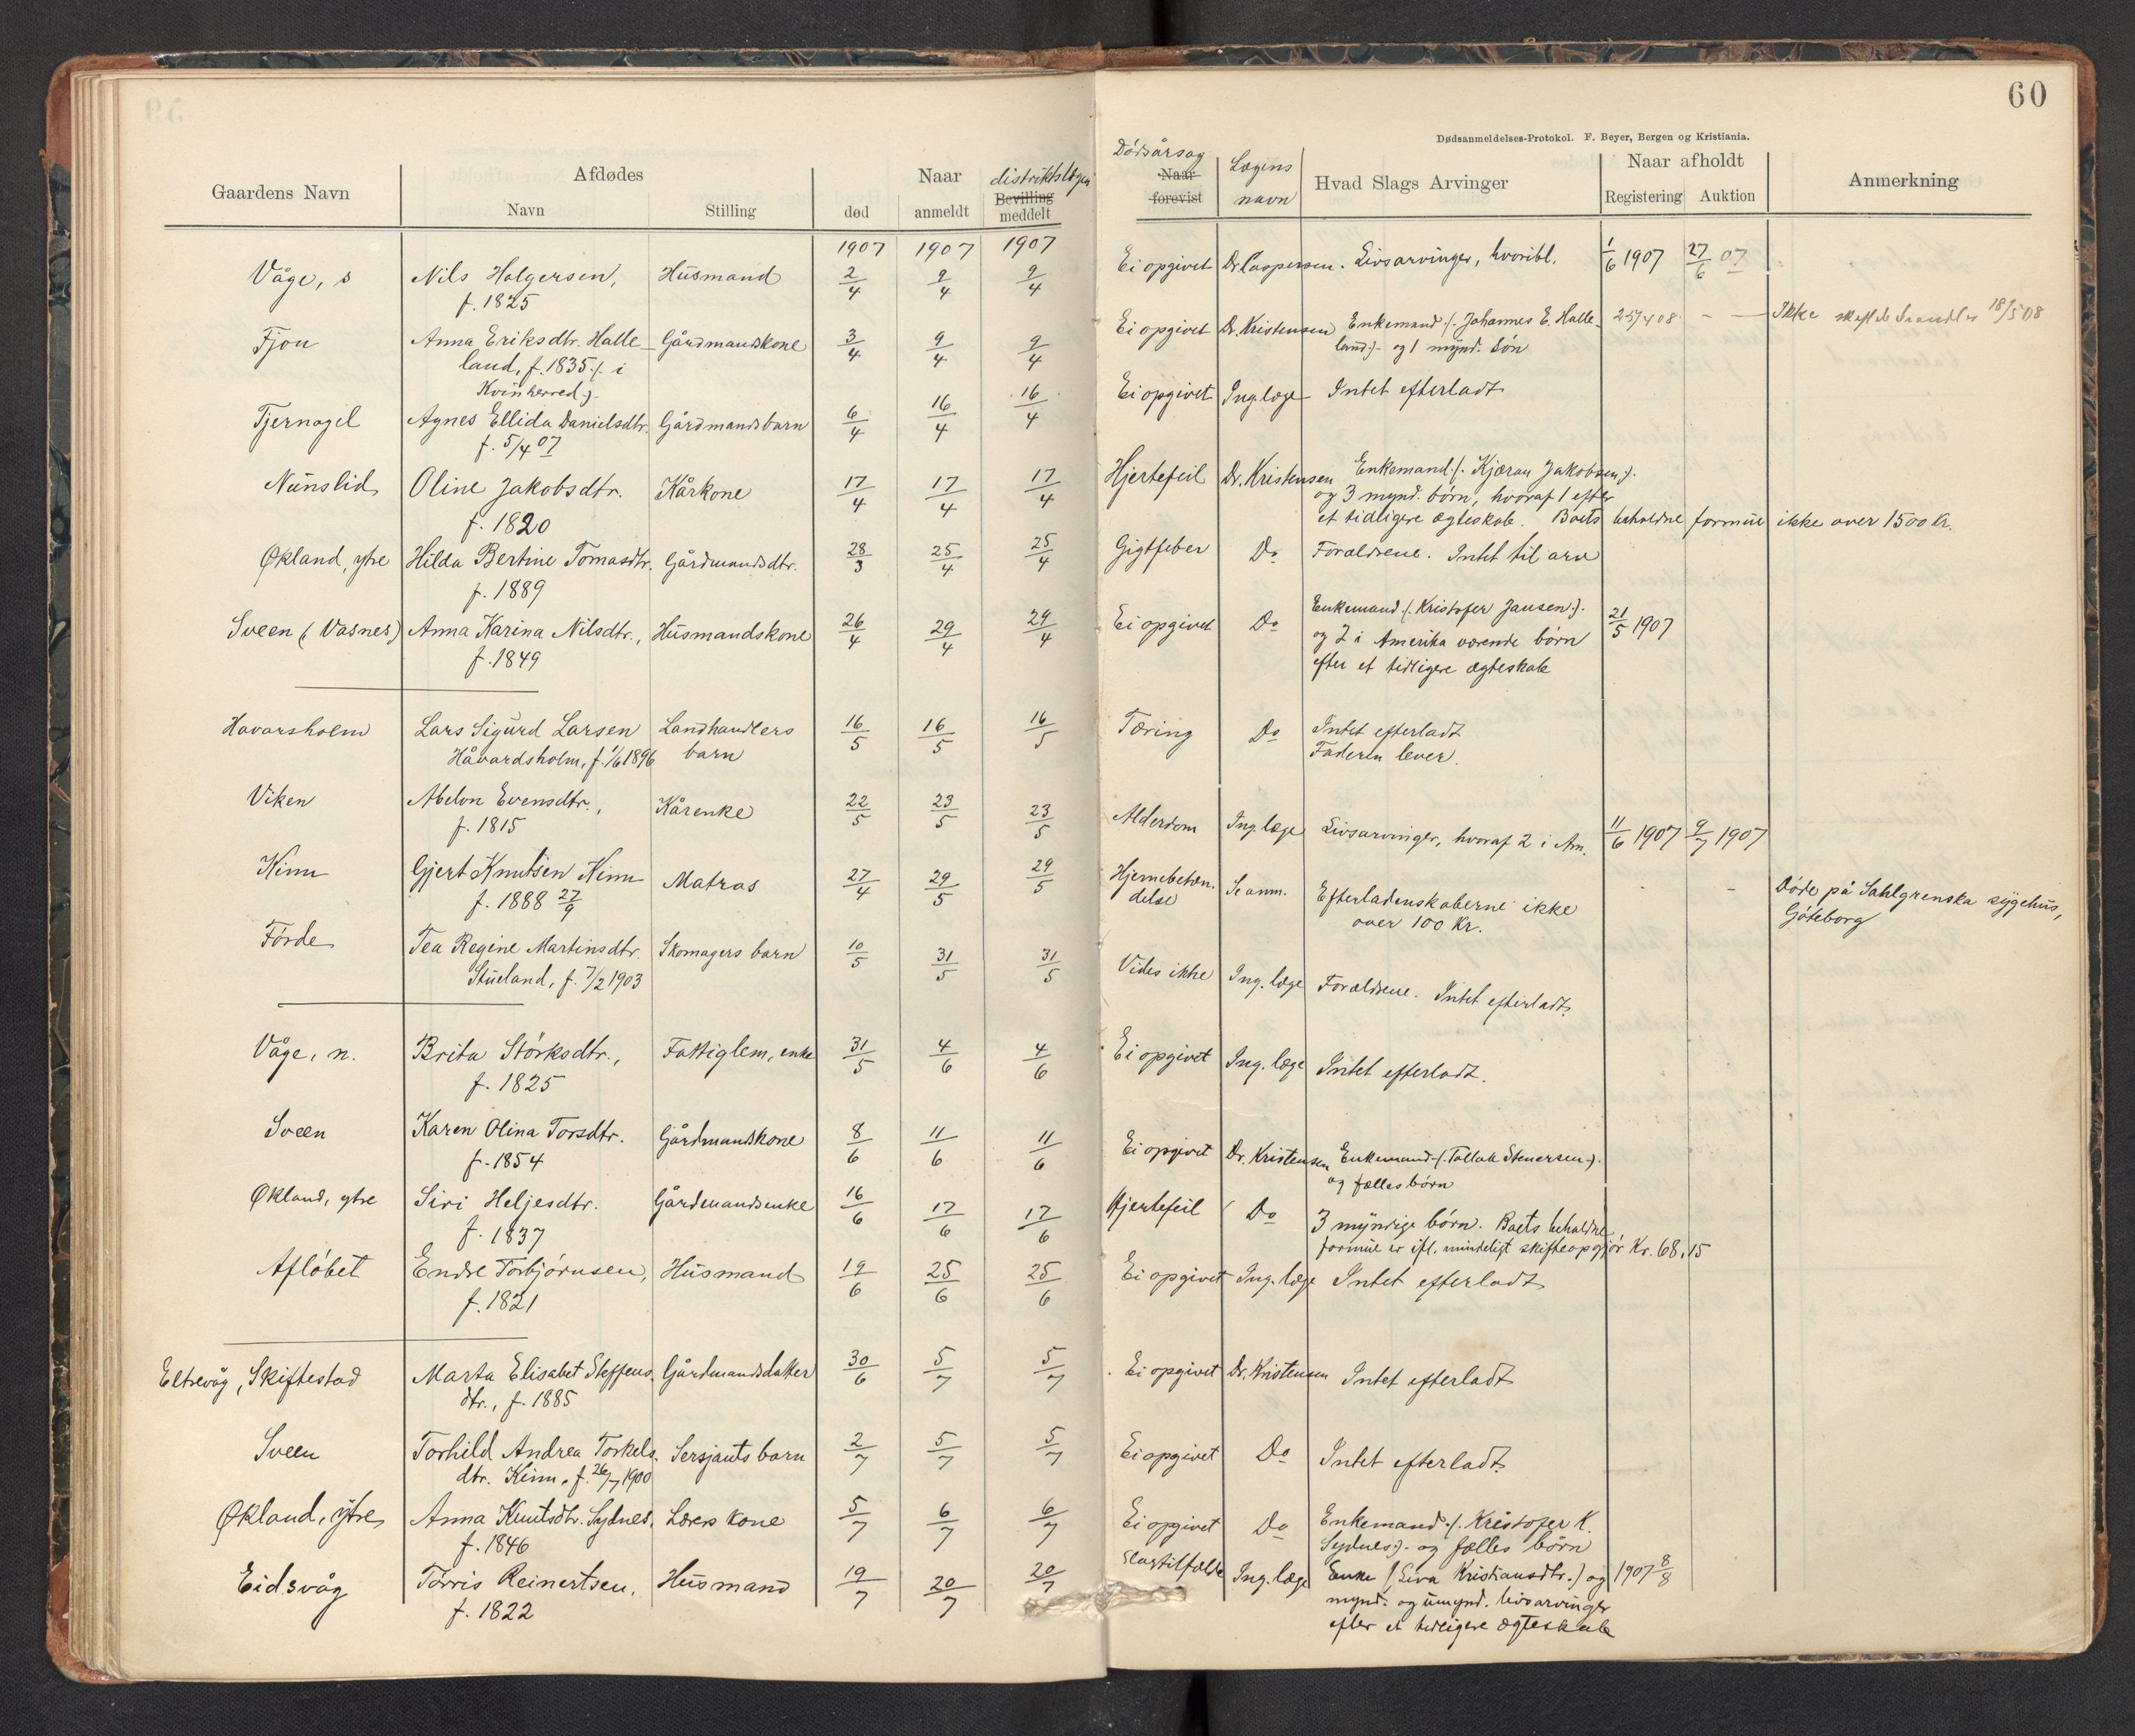 60
Dødsanmeldelses-Protokol. F. Beyer, Bergen og Kristiania.
Gaardens Navn
Afdødes
Navn
Stilling
Naar
død
anmeldt
distriktslægen
Bevilling
meddelt
Dødsårsag
Naar
forevist
Lægens
navn
Hvad Slags Arvinger
Naar afholdt
Registering
Auktion
Anmerkning
1907 1907 1907
Våge, s Nils Holgersen, Husmand 2/4 9/4 9/4 Ei opgivet Dr. Caspersen. Livsarvinger, hvoribl. 1/6 1907 27/6 07
f. 1825
Fjon Anna Eriksdtr. Halle- Gårdmandskone 3/4 9/4 9/4 Ei opgivet Dr. Kristensen Enkemand /. Johannes E. Halle- 25/4 08 - — Ikke 18/5 08
land, f. 1835 /. i land ./. og 1 mynd. søn
Kvinherred ./.
Tjernagel Agnes Ellida Danielsdtr. Gårdmandsbarn 6/4 16/4 16/4 Ei opgivet Ing. læge Intet efterladt
f. 5/4 07
Nünslid Oline Jakobsdtr. Kårkone 17/4 17/4 17/4 Hjertefeil Dr. Kristensen Enkemand /. Kjæran Jakobsen ./.
f. 1820 og 3 mynd. børn, hvoraf 1 efter
et tidligere ægteskab. Boets beholdne formue ikke over 1500 Kr.
Økland, ytre Hilda Bertine Tomasdtr. Gårdmandsdtr. 28/3 25/4 25/4 Gigtfeber Do Forældrene. Intet til arv
f. 1889
Sveen (Vasnes) Anna Karina Nilsdtr., Husmandskone 26/4 29/4 29/4 Ei opgivet Do Enkemand /. Kristofer Jansen ./. 21/5 1907
f. 1849 og 2 i Amerika værende børn
efter et tidligere ægteskab
Havarsholm Lars Sigurd Larsen Landhandlers 16/5 16/5 16/5 Tæring Do Intet efterladt
Håvardsholm, f. 1/6 1896 barn Faderen lever.
Viken Abelon Evensdtr., Kårenke 22/5 23/5 23/5 Alderdom Ing. læge Livsarvinger, hvoraf 2 i Am. 11/6 1907 9/7 1907
f. 1815
Kinn Gjert Knutsen Kinn Matros 27/4 29/5 29/5 Hjernebetæn- Se anm. Efterladenskaberne ikke - Døde på Sahlgrenska sygehus,
f. 1888 27/9 delse over 100 Kr. Göteborg
Førde Tea Regine Martinsdtr. Skomagers barn 10/5 31/5 31/5 Vides ikke Ing. læge Forældrene. Intet efterladt.
Stueland, f. 7/2 1903
Våge, n. Brita Størksdtr., Fattiglem, enke 31/5 4/6 4/6 Ei opgivet Ing. læge Intet efterladt.
f. 1825
Sveen Karen Olina Torsdtr. Gårdmandskone 8/6 11/6 11/6 Ei opgivet Dr. Kristensen Enkemand /. Tollak Stenersen ./.
f. 1854 og fælles børn
Økland, ytre Siri Heljesdtr. Gårdmandsenke 16/6 17/6 17/6 Hjertefeil Do 3 myndige børn. Boets beholdne
f. 1837 formue er ifl. mindeligt skifteopgjør Kr. 68,15
Afløbet Endre Torbjørnsen, Husmand 19/6 25/6 25/6 Ei opgivet Ing. læge Intet efterladt
f. 1821
Eltrevåg, Skiftestad Marta Elisabet Steffens- Gårdmandsdatter 30/6 5/7 5/7 Ei opgivet Dr. Kristensen Intet efterladt
dtr., f. 1885
Sveen Torhild Andrea Torkels- Sersjants barn 2/7 5/7 5/7 Ei opgivet Do Intet efterladt.
dtr. Kinn, f. 26/7 1900
Økland, ytre Anna Knutsdtr. Sydnes, Lærers kone 5/7 6/7 6/7 Ei opgivet Do Enkemand /. Kristofer K.
f. 1846 Sydnes ./. og fælles børn
Eidsvåg Tørris Reinertsen, Husmand 19/7 20/7 20/7 Slagtilfælde Ing. læge Enke (Siva Kristiansdtr.) og 1907 8/8
f. 1822 mynd. og umynd. livsarvinger
efter et tidligere ægteskab